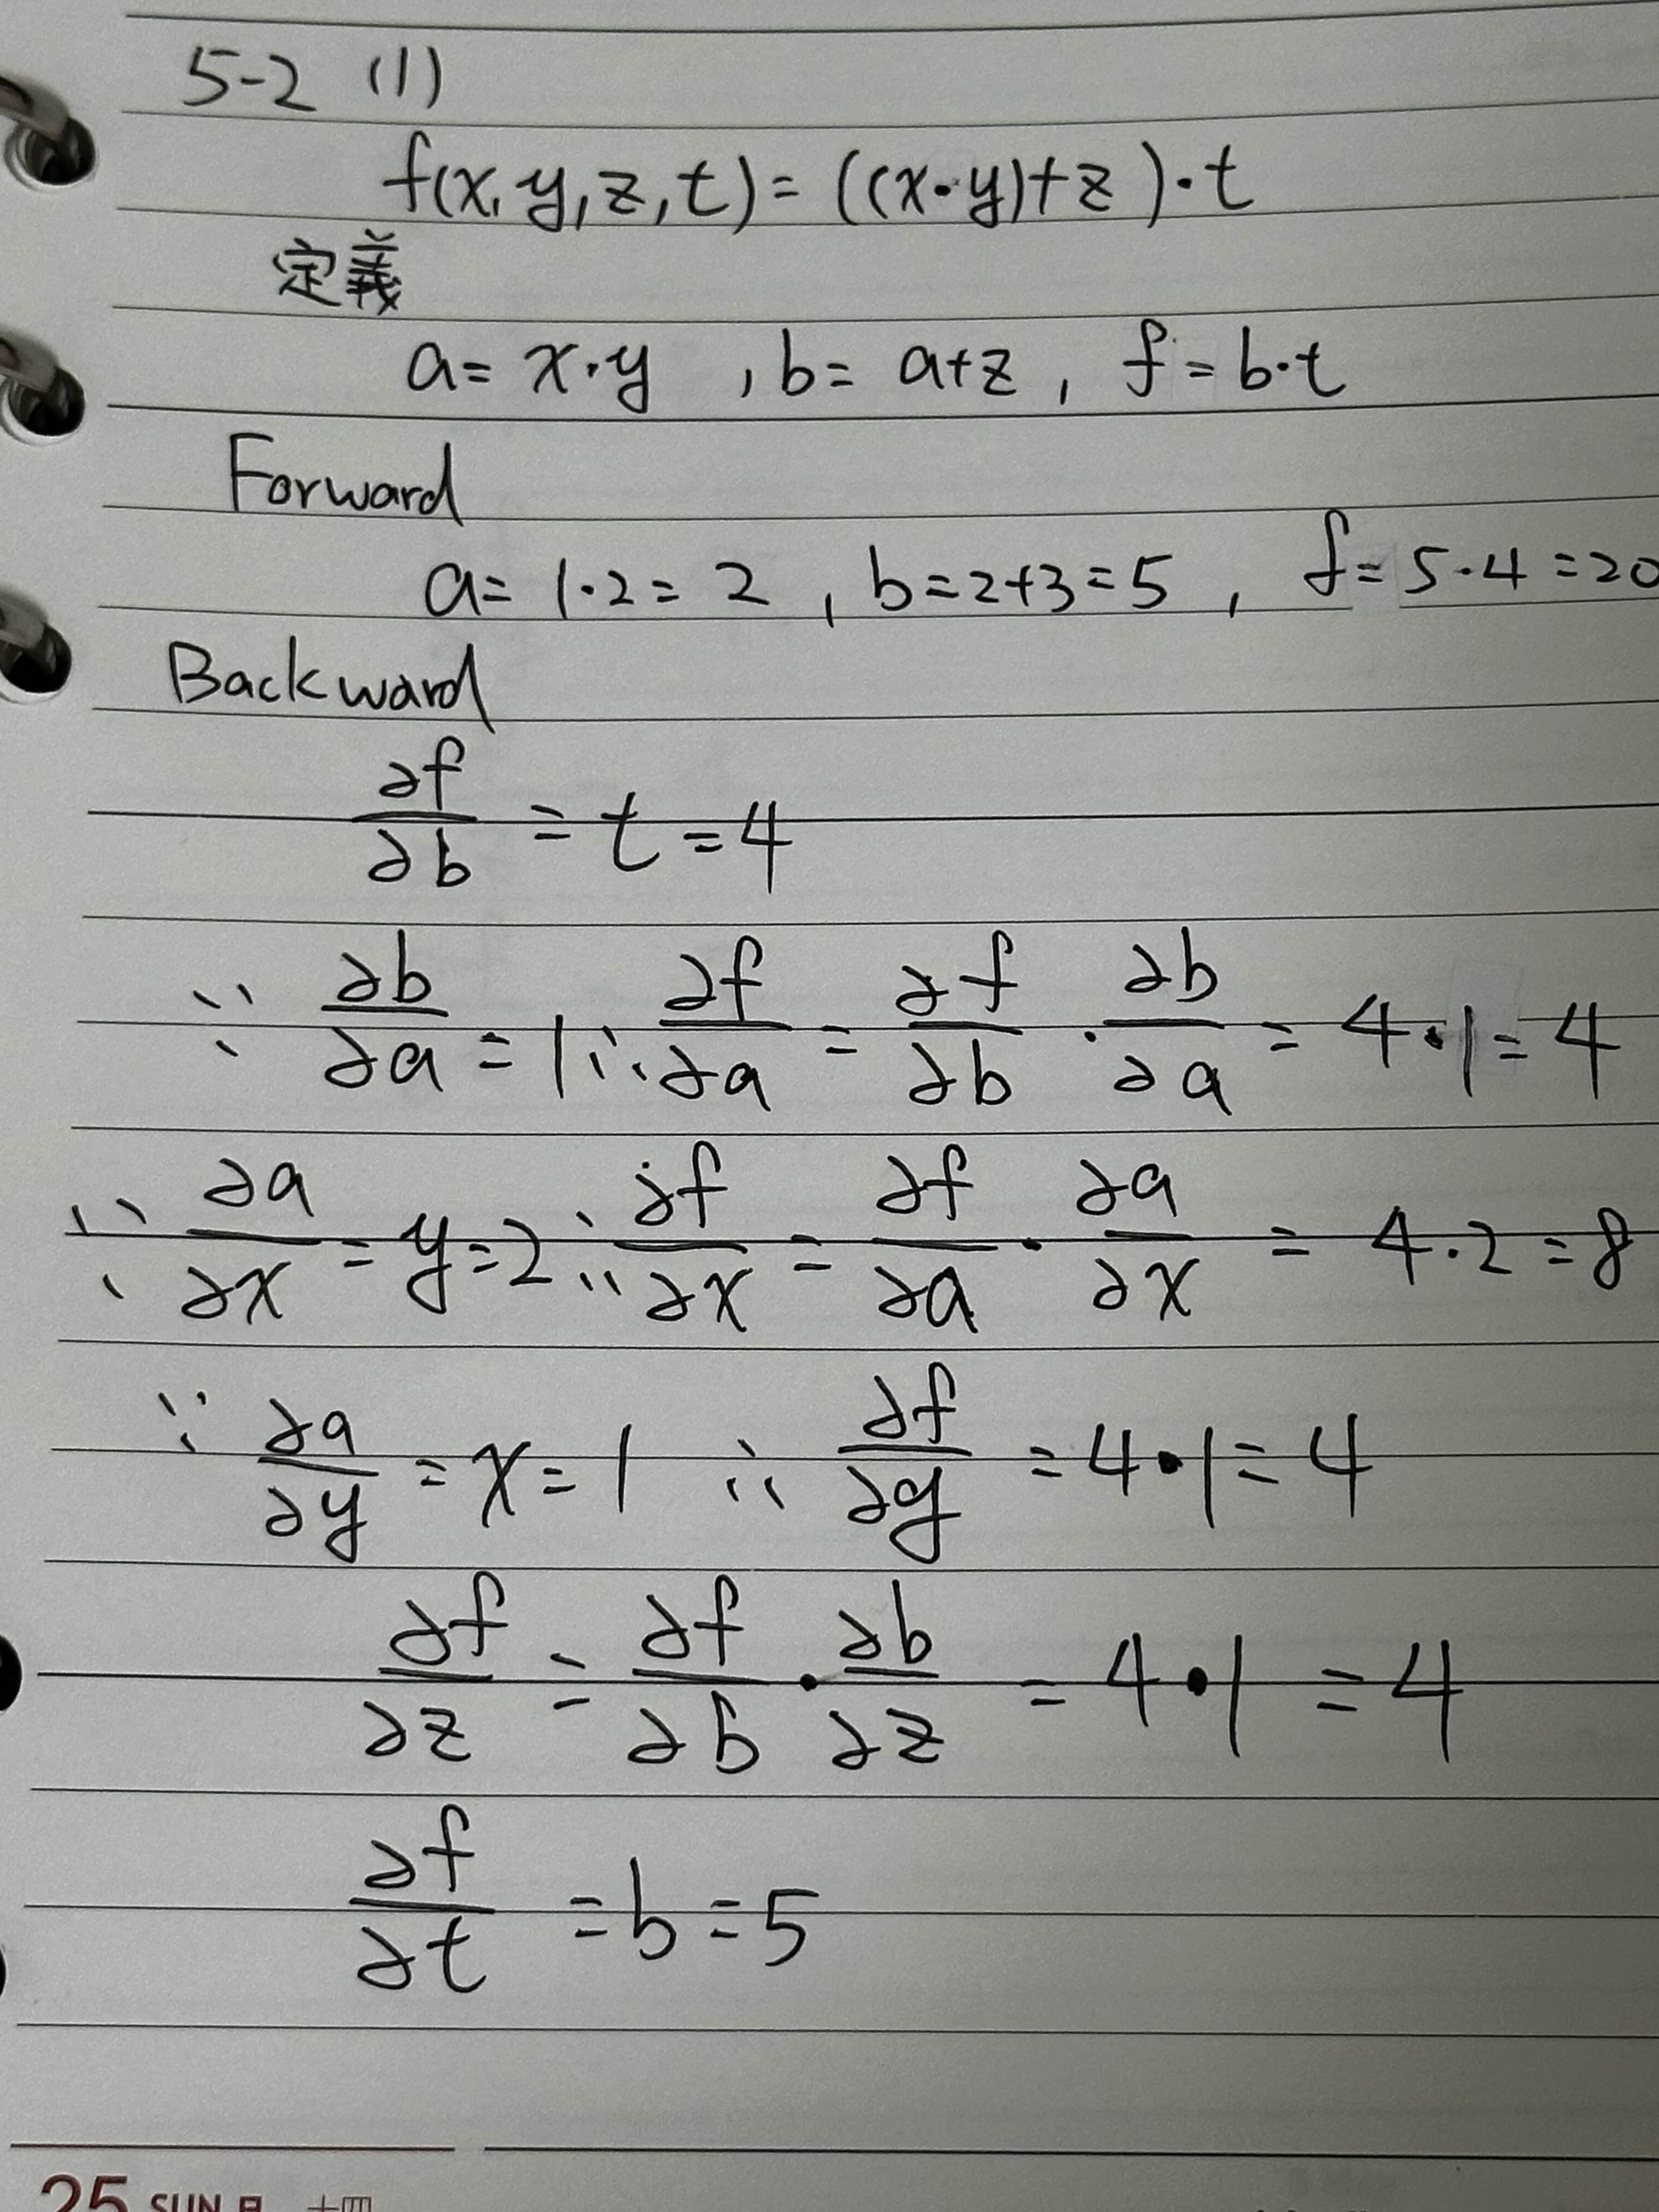 5-2 (1)
f(x,y,z,t)=((x·y)+z)·t
定義
a=x·y , b=a+z , f=b·t
Forward
a=1·2=2 , b=2+3=5 , f=5·4=20
Backward
∂f/∂b = t = 4
∵ ∂b/∂a = 1 ∴ ∂f/∂a = ∂f/∂b · ∂b/∂a = 4·1 = 4
∵ ∂a/∂x = y = 2 ∴ ∂f/∂x = ∂f/∂a · ∂a/∂x = 4·2 = 8
∵ ∂a/∂y = x = 1 ∴ ∂f/∂y = 4·1 = 4
∂f/∂z = ∂f/∂b · ∂b/∂z = 4·1 = 4
∂f/∂t = b = 5
25 SUN 日 十四